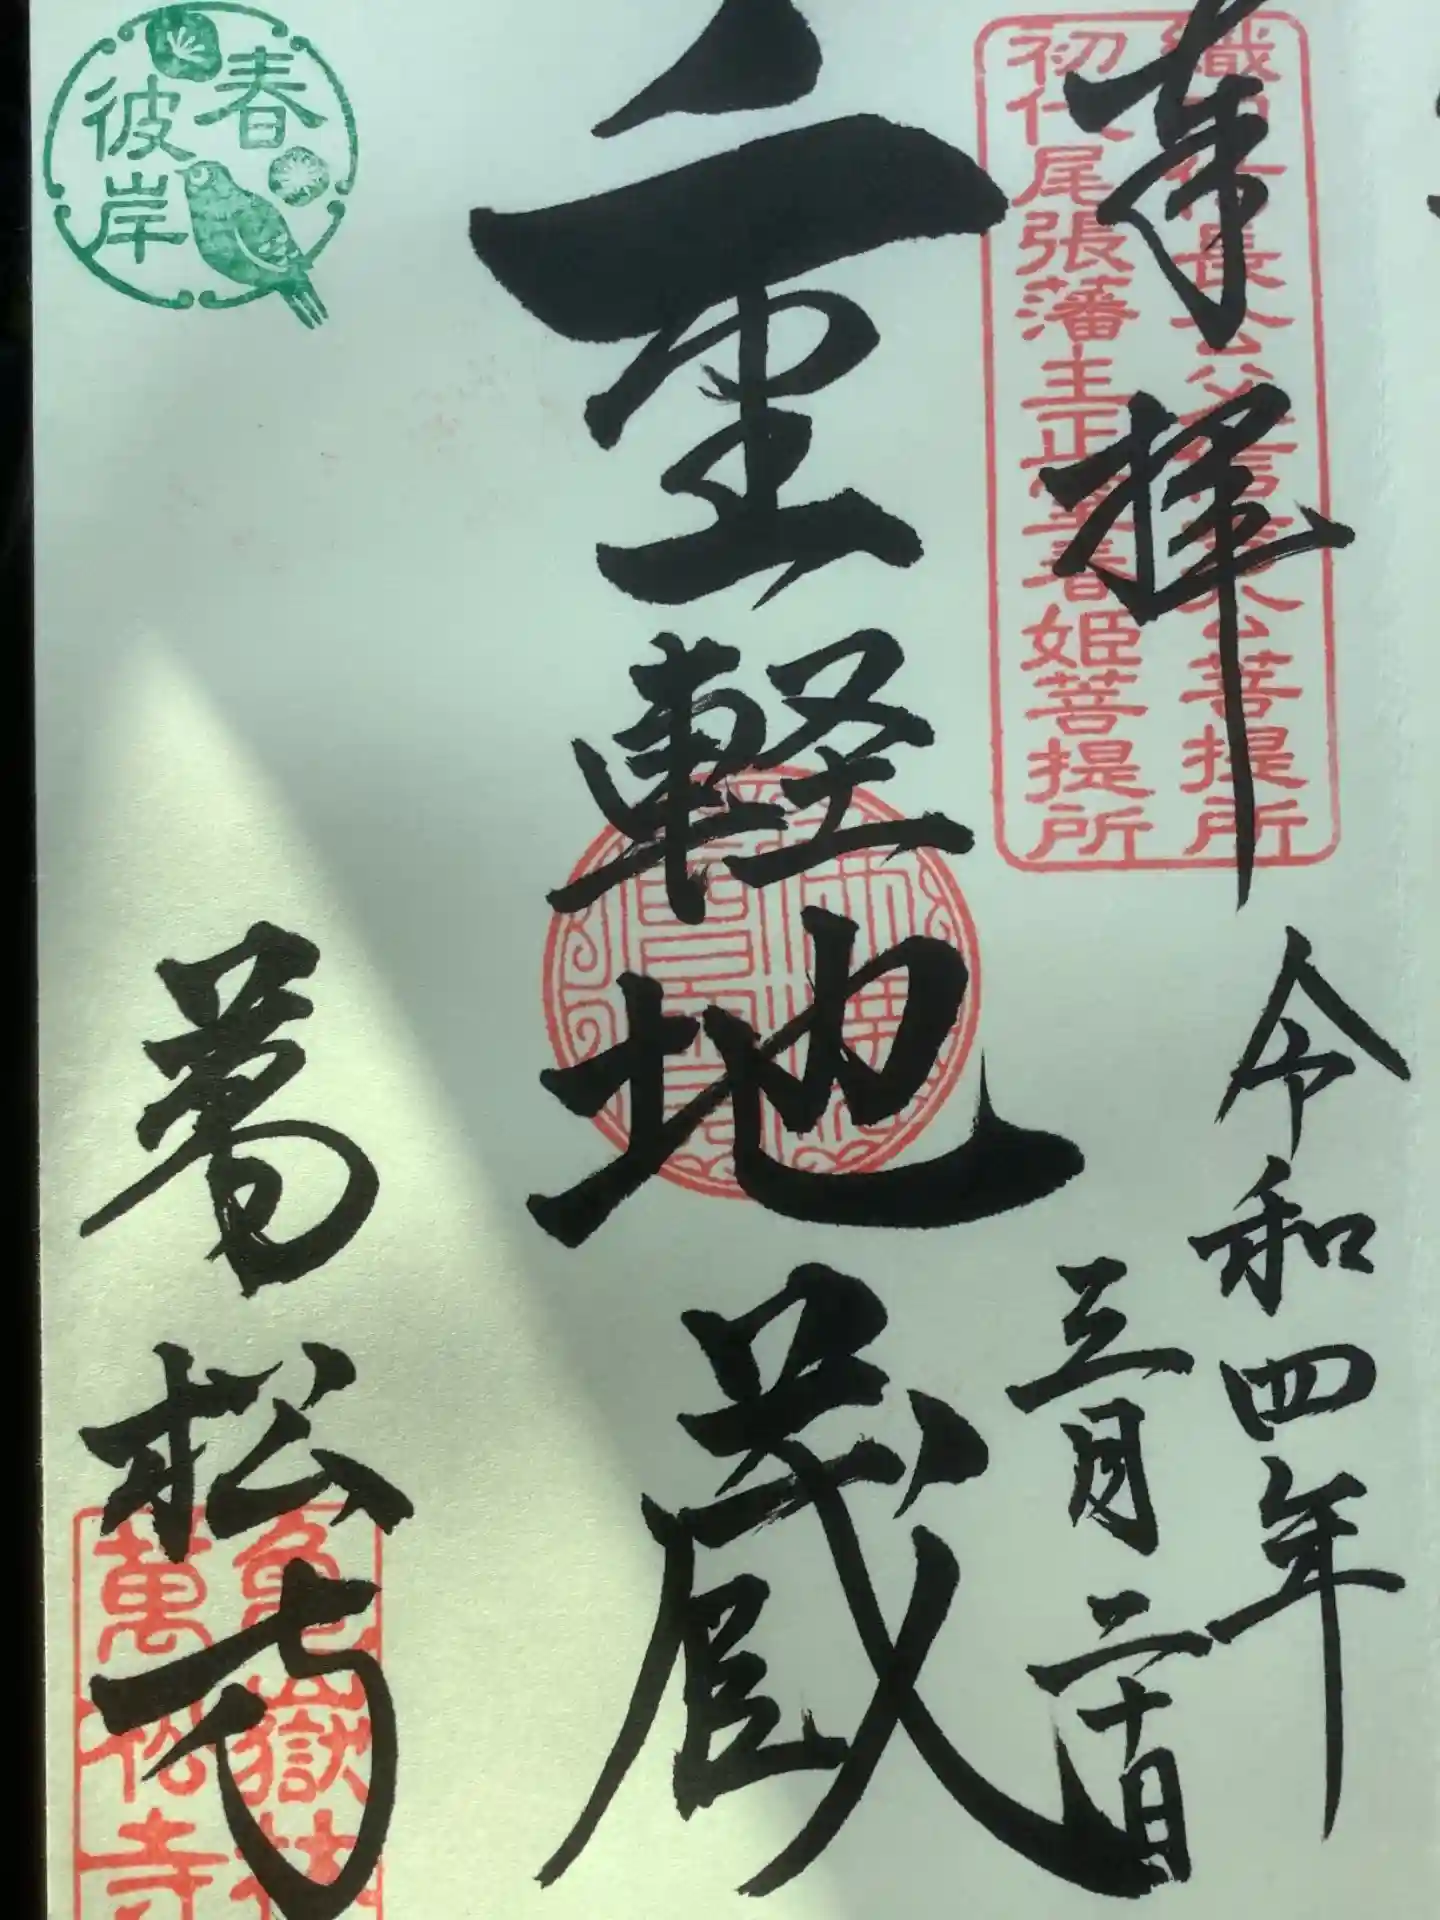 奉拝
令和四年
三月二十日
織田信長公父君信秀公菩提所
初代尾張藩主正室春姫菩提所
重軽地蔵
春
彼岸
萬松寺
亀嶽林
萬松寺